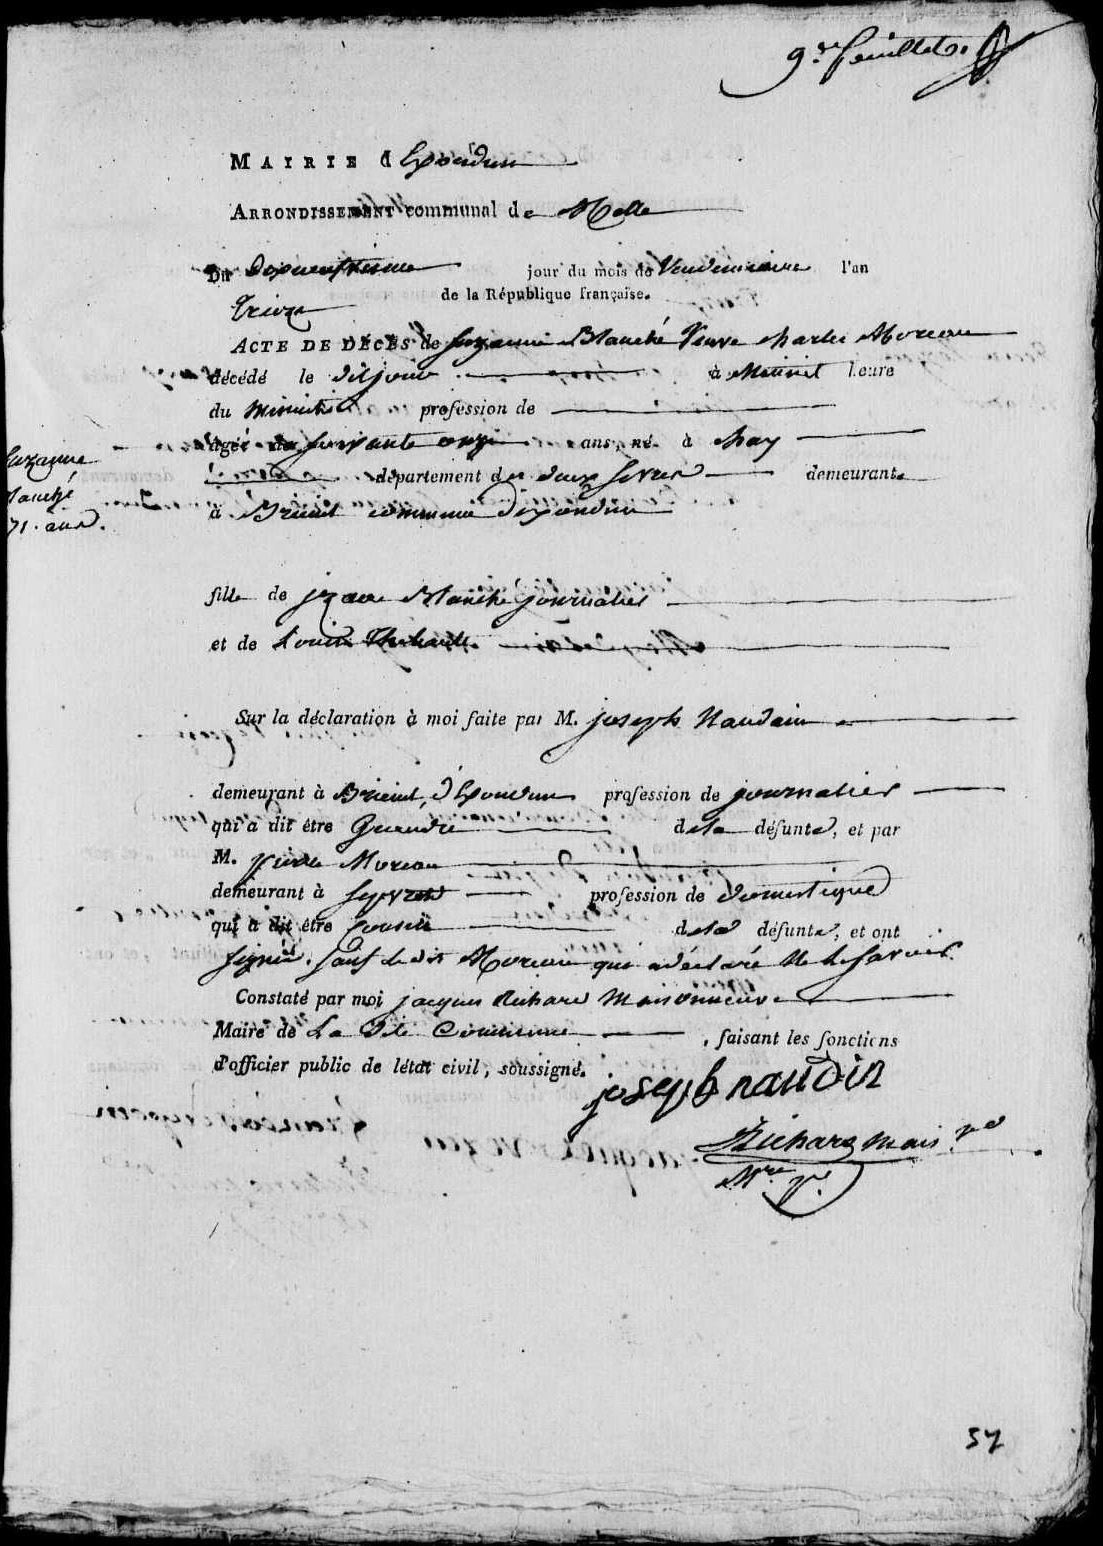 9.e feuillet.
MAIRIE d'Exoudun
ARRONDISSEMENT communal de Melle
Du dixneufvieme jour du mois de Vendemiaire l'an
Treize de la République française.
ACTE DE DÉCÈS de Suzanne Blanché Veuve charles Moreau
décédé le dit jour à Minuit heure
du profession de
agée de soixante onze ans, né à chay
département des deux sevres demeurante
à Brieuil commune d'exoudun
Suzanne
Blanché
71. ans.
fille de jzaac Blanché journalier
et de Louise Thibault
Sur la déclaration à moi faite par M. joseph Naudain
demeurant à Brieuil, d'Exoudun profession de journalier
qui a dit être Gendre de la défunte, et par
M. pierre Moreau
demeurant à Sepvret profession de domestique
qui a dit être cousin de la défunte, et ont
signé. sauf le dit Moreau qui a déclaré ne le savoir.
Constaté par moi jacques Richard Maisonneuve
Maire de La dite Commune, faisant les fonctions
d'officier public de l'état civil, soussigné.
joseph naudin
Richard mais.ve
M.re
57